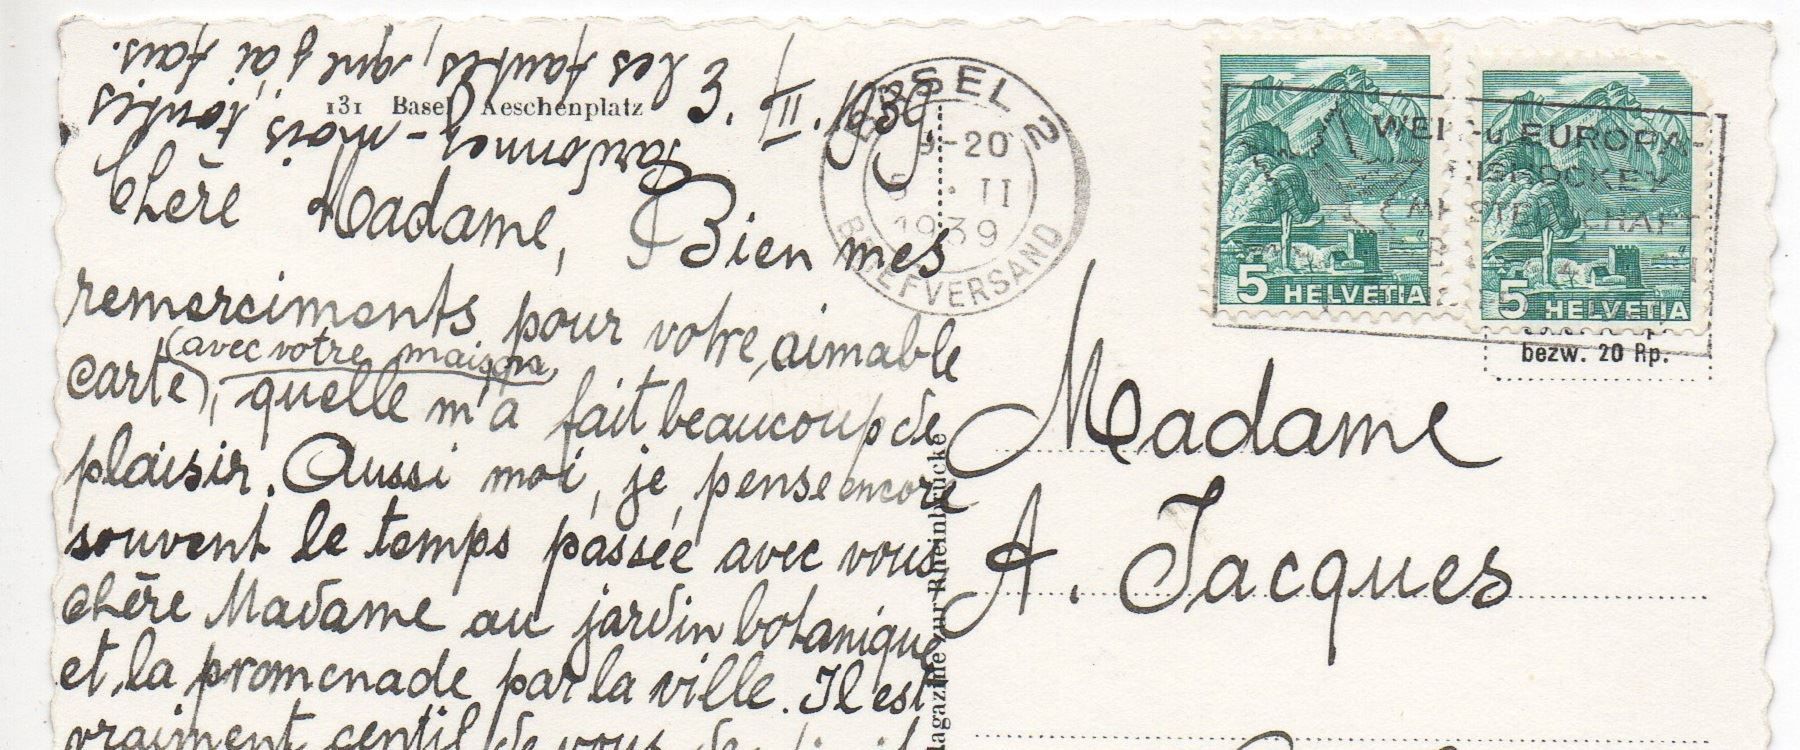 Pardonnez-mois toutes
les fautes, que j'ai fais.
131 Basel Aeschenplatz
3. II. 1939.
Chère Madame, Bien mes
remerciments pour votre aimable
carte (avec votre maison),
quelle m'a fait beaucoup de
plaisir. Aussi moi, je pense encore
souvent le temps passée avec vous
chère Madame au jardin botanique
et la promenade par la ville. Il est
vraiment gentil de vous de
BASEL 2
9-20
II
1939
BRIEFVERSAND
WELT-u. EUROPA-
EISHOCKEY
MEISTERSCHAFT
5 HELVETIA
5 HELVETIA
bezw. 20 Rp.
Magazine zur Rheinbrücke
Madame
A. Jacques